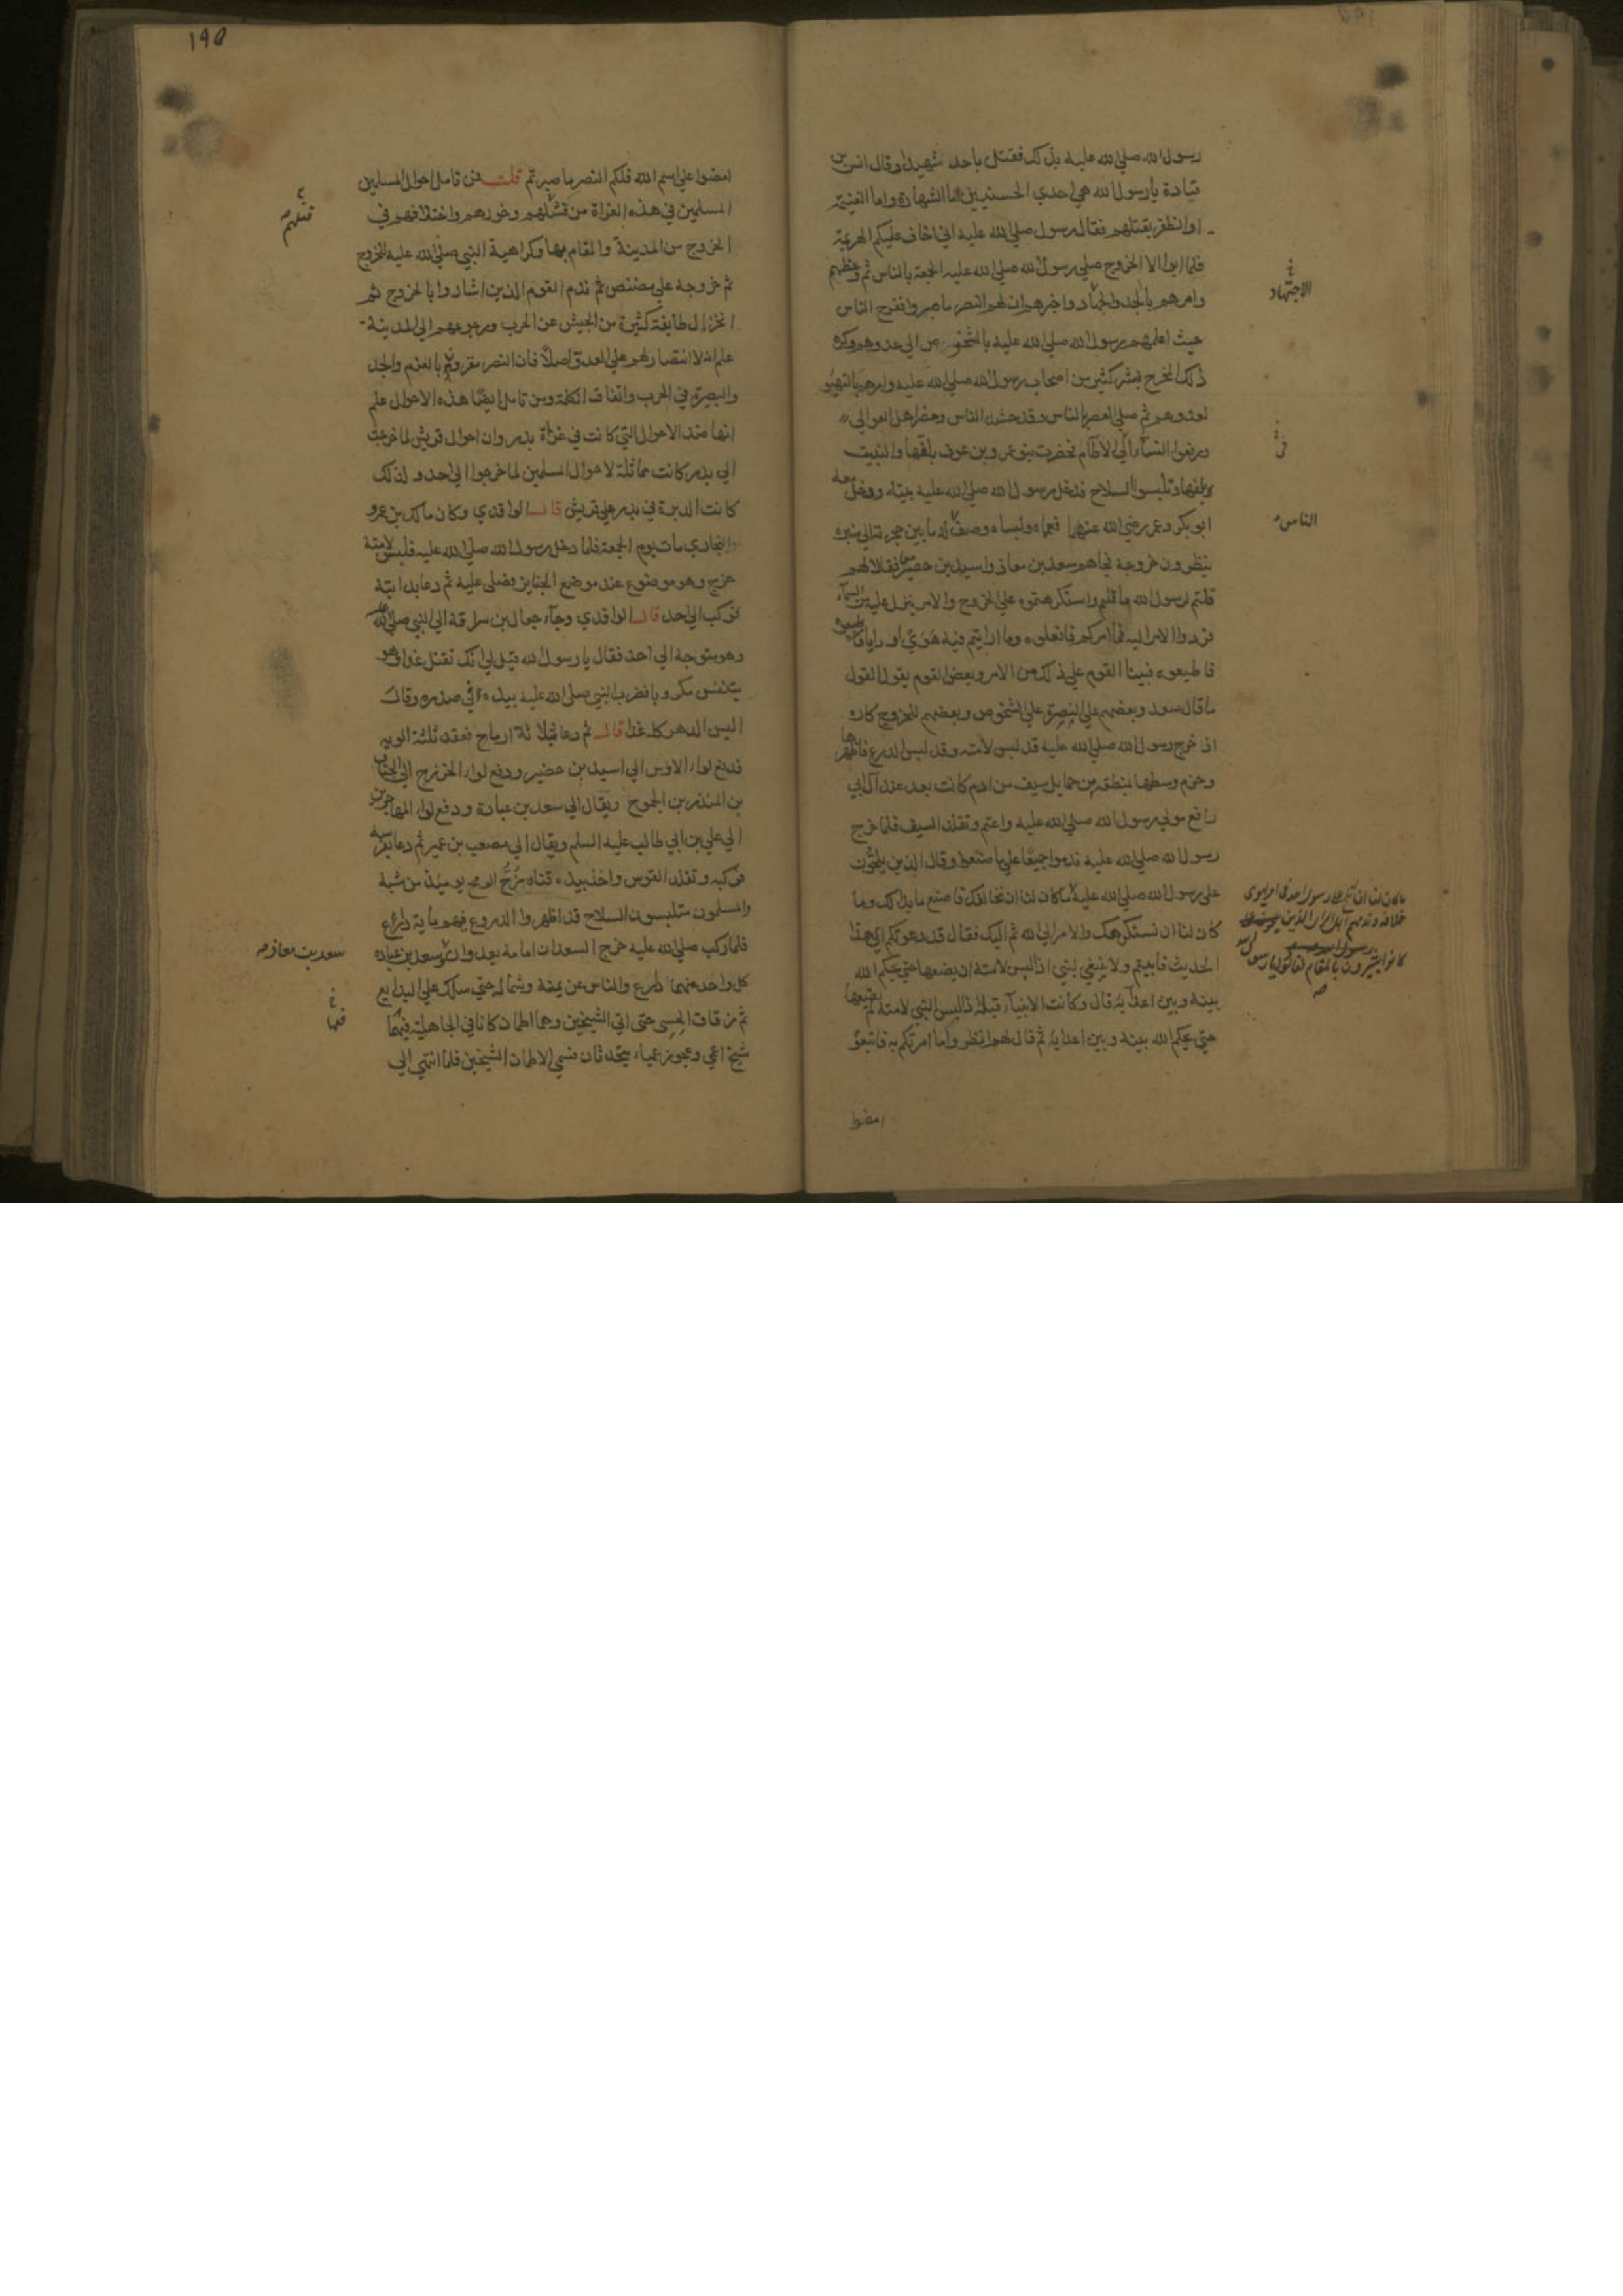 رسول الله صلي الله عليه بذلك فقتل باحد شهيدا وقال انس بن
قتادة يا رسول الله هي احدي الحسنيين اما الشهادة واما الغنيمة
او الظفر بقتلهم فقال رسول صلي الله عليه اني اخاف عليكم الهزيمة
فلما ابوا الا الخروج صلي رسول الله صلي الله عليه الجمعة بالناس ثم وعظهم
وامرهم بالجد والجهاد واخبرهم ان لهم النصر ما صبروا ففرح الناس
حيث اعلمهم رسول الله صلي الله عليه بالشخوص الي عدوهم وكره
ذلك المخرج بشر كثير من اصحاب رسول الله صلي الله عليه وامرهم بالتهيؤ
لعدوهم ثم صلي العصر بالناس وقد حشد الناس وحضر اهل العوالي
ورفعوا النسآء الي الاطام فحضرت بنو عمرو بن عوف بلفها والنبيت
بلفها وتلبسوا السلاح فدخل رسول الله صلي الله عليه بيته ودخل معه
ابو بكر وعمر رضي الله عنهما فعماه ولبساه وصف له ما بين حجرته الي منبره
ينظرون خروجه فجاهم سعد بن معاذ واسيد بن حضير فقالا لهم
قلتم لرسول الله ما قلتم واستكرهتموه علي الخروج والامر ينزل عليه من السمآء
فردوا الامر اليه فما امركم فافعلوه وما رايتم فيه هوي او رايا فاطيعوه
فاطيعوه فبينا القوم علي ذلك من الامر وبعض القوم يقول القول
ما قال سعد وبعضهم علي البصيرة علي الشخوص وبعضهم للخروج كاره
اذ خرج رسول الله صلي الله عليه قد لبس لامته وقد لبس الدرع فاظهرها
وحزم وسطها بمنطقة من حمايل سيف من ادم كانت بعد عند آل ابي
رافع مولي رسول الله صلي الله عليه واعتم وتقلد السيف فلما خرج
رسول الله صلي الله عليه ندموا جميعا علي ما صنعوا وقال الذين يلحون
علي رسول الله صلي الله عليه ما كان لنا ان نخالفك فاصنع ما بدا لك وما
كان لنا ان نستكرهك والامر الي الله ثم اليك فقال قد دعوتكم الي هذا
الحديث فابيتم ولا ينبغي لنبي اذا لبس لامته ان يضعها حتي يحكم الله
بينه وبين اعدآيه قال وكانت الانبيآء قبله اذا لبس النبي لامته لم يضعها
حتي يحكم الله بينه وبين اعدايه ثم قال لهم انظروا ما امرتكم به فاتبعوه
امضوا
الاجتهاد
الناس
190
امضوا علي اسم الله فلكم النصر ما صبرتم قلت فمن تامل احوال المسلمين
المسلمين في هذه الغزاة من فشلهم وخورهم واختلافهم في
الخروج من المدينة والمقام بها وكراهية النبي صلي الله عليه للخروج
ثم خروجه علي مضض ثم ندم القوم الذين اشاروا بالخروج ثم
انخزال طايفة كثيرة من الجيش عن الحرب ورجوعهم الي المدينة
علم انه لا انتصار لهم علي العدو اصلا فان النصر مقرون بالعزم والجد
والبصيرة في الحرب واتفاق الكلمة ومن تامل ايضا هذه الاحوال علم
انها ضد الاحوال التي كانت في غزاة بدر وان احوال قريش لما خرجت
الي بدر كانت مماثلة لاحوال المسلمين لما خرجوا الي احد ولذلك
كانت الدبرة في بدر علي قريش قال الواقدي وكان مالك بن عمرو
النجاري مات يوم الجمعة فلما دخل رسول الله صلي الله عليه فلبس لامته
خرج وهو موضوع عند موضع الجنايز فصلي عليه ثم دعا بدابته
فركب الي احد قال الواقدي وجآء جعال بن سراقة الي النبي صلي الله عليه
وهو متوجه الي احد فقال يا رسول الله قيل لي انك تقتل غدا وهو
يتنفس مكروبا فضرب النبي صلي الله عليه بيده في صدره وقال
اليس الدهر كله غدا قال ثم دعا بثلاثة ارماح فعقد ثلثة الوية
فدفع لواء الاوس الي اسيد بن حضير ودفع لواء الخزرج الي الحباب
بن المنذر بن الجموح ويقال الي سعد بن عبادة ودفع لواء المهاجرين
الي علي بن ابي طالب عليه السلم ويقال الي مصعب بن عمير ثم دعا بفرسه
فركبه وتقلد القوس واخذ بيده قناه زج الرمح يوميذ من شبة
والمسلمون متلبسون السلاح قد اظهروا الدروع فيهم ماية دارع
فلما ركب صلي الله عليه خرج السعدان امامه يعدوان وسعد بن عبادة
كل واحد منهما دارع والناس عن يمينه وشماله حتي سلك علي البدايع
ثم زقاق الحسي حتي اتي الشيخين وهما اطمان كانا في الجاهلية فيهما
شيخ اعمي وعجوز عمياء يتحدثان فسمي الاطمان الشيخين فلما انتهي الي
سعد بن معاذ